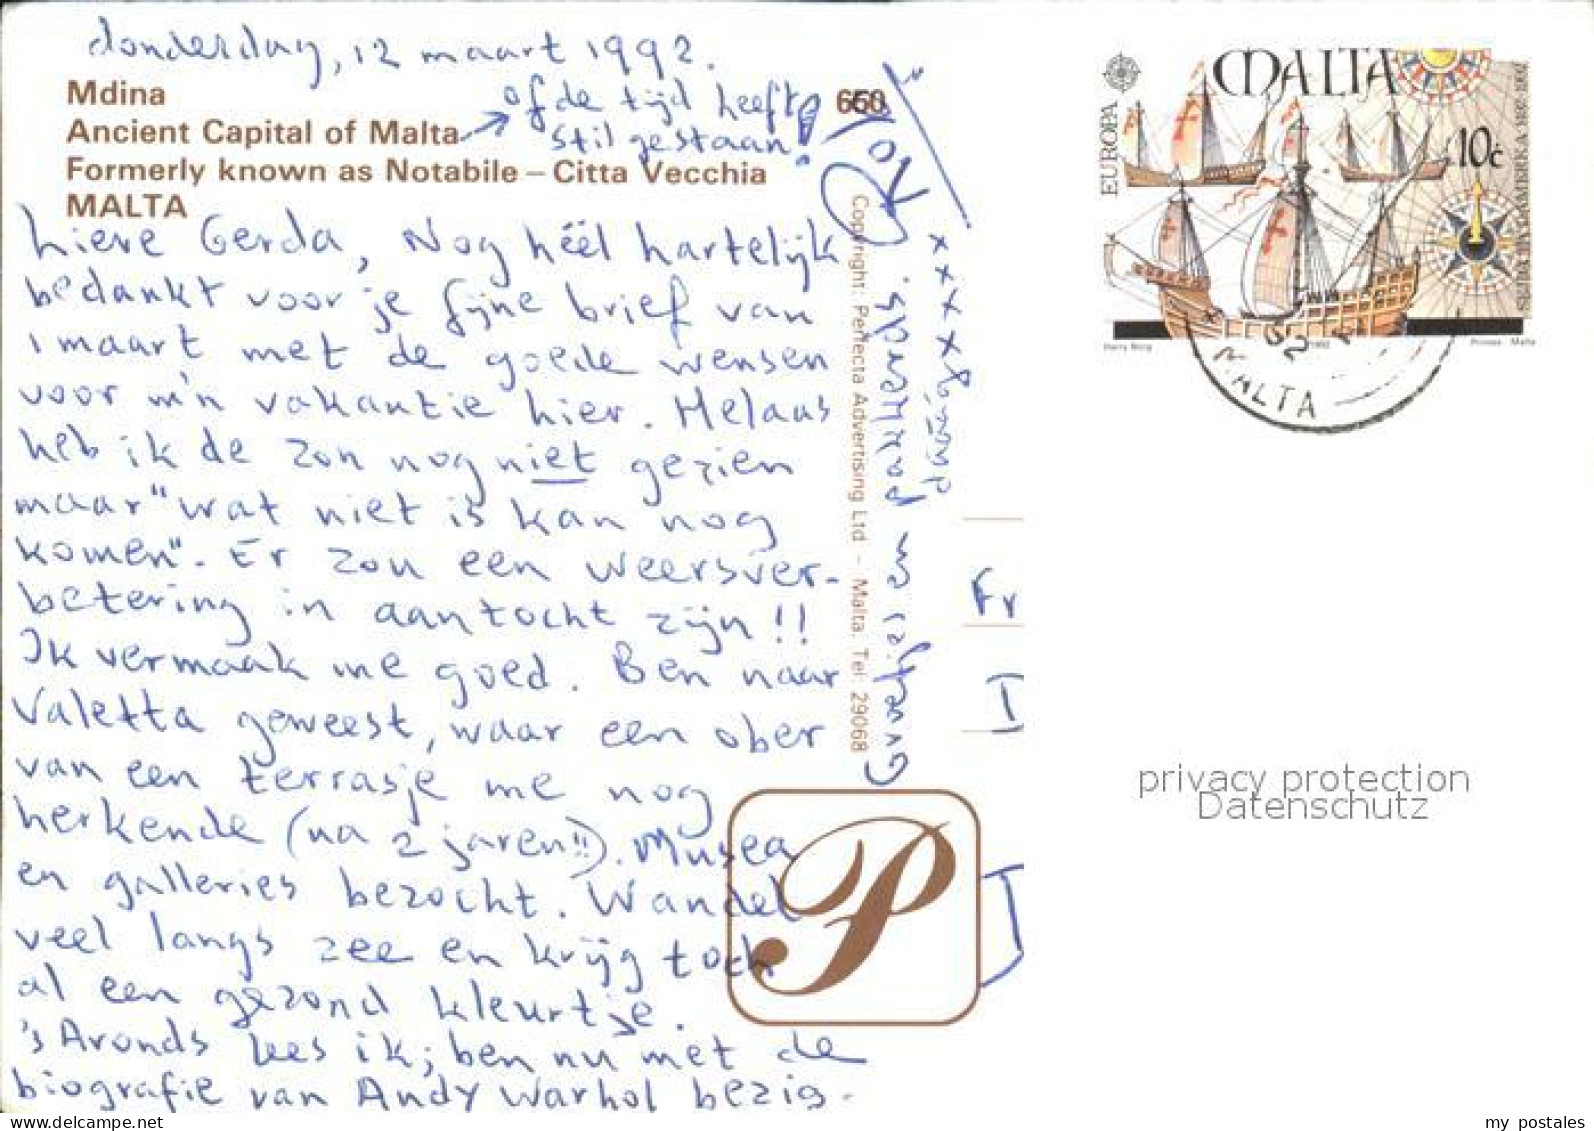 donderdag, 12 maart 1992.
Mdina
Ancient Capital of Malta
Formerly known as Notabile – Citta Vecchia
MALTA
of de tijd heeft
stil gestaan!
660
Lieve Gerda, Nog héél hartelijk
bedankt voor je fijne brief van
1 maart met de goede wensen
voor m'n vakantie hier. Helaas
heb ik de zon nog niet gezien
maar "wat niet is kan nog
komen". Er zou een weersver-
betering in aantocht zijn!!
Ik vermaak me goed. Ben naar
Valetta geweest, waar een ober
van een terrasje me nog
herkende (na 2 jaren!!). Musea
en galleries bezocht. Wandel
veel langs zee en krijg toch
al een gezond kleurtje.
's Avonds lees ik; ben nu met de
biografie van Andy Warhol bezig.
Copyright: Perfecta Advertising Ltd – Malta. Tel: 29068
Groetjes en pakkerds.
xxxxx
P
Fr
MALTA
EUROPA
10c
Harry Borg
1992
Printex - Malta
MALTA
privacy protection
Datenschutz
my postales